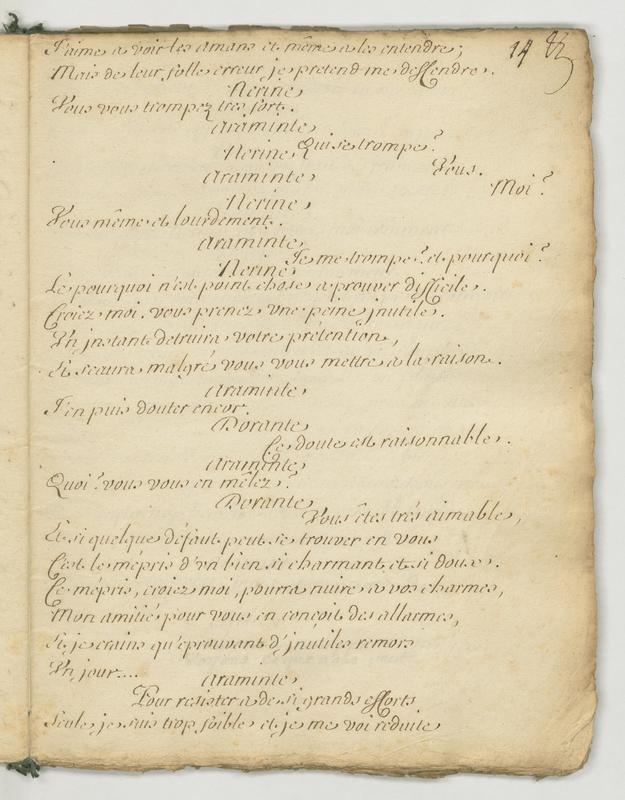 J'aime a voir les amans et même a les entendre;
19 83
Mais de leur folle erreur je pretend me deffendre.
Nerine
Vous vous trompez tres fort.
Araminte
Qui se trompe?
Nerine
Vous.
Araminte
Moi?
Nerine
Vous même et lourdement.
Araminte
Je me trompe? et pourquoi?
Nerine
Le pourquoi n'est point chose a prouver difficile.
Croiez moi, vous prenez vne peine jnutile.
Vn jnstant detruira votre prétention,
Et sçaura malgré vous vous mettre a la raison.
Araminte
J'en puis douter encor.
Dorante
Ce doute est raisonnable.
Araminte
Quoi? vous vous en mêlez?
Dorante
Vous êtes trés aimable,
Et si quelque défaut peut se trouver en vous
C'est le mépris d'vn bien si charmant et si doux.
Ce mépris, croiez moi, pourra nuire a vos charmes,
Mon amitié pour vous en conçoit des allarmes,
Et je crains qu'eprouvant d'jnutiles remors
Vn jour....
Araminte
Pour resister a de si grands efforts
Seule, je suis trop foible et je me voi reduite